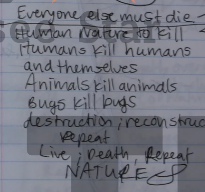 Everyone else must die -
Human Nature to kill
Humans kill humans
and themselves
Animals kill animals
Bugs kill bugs
destruction, reconstruc
Repeat
Live, Death, Repeat
NATURE